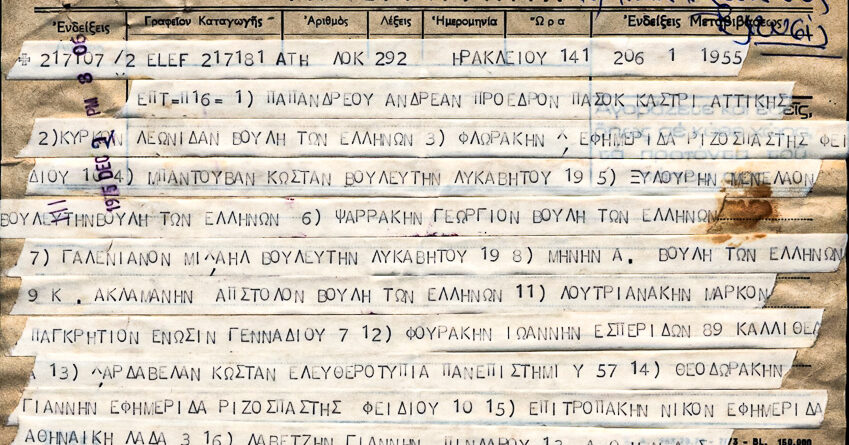 Ἐνδείξεις Γραφεῖον Καταγωγῆς Ἀριθμὸς Λέξεις Ἡμερομηνία Ὥρα Ἐνδείξεις Μεταβιβάσεως
217107/2 ELEF 217181 ΑΤΗ ΛΟΚ 292 ΗΡΑΚΛΕΙΟΥ 141 206 1 1955
ΕΠΤ=Π16= 1) ΠΑΠΑΝΔΡΕΟΥ ΑΝΔΡΕΑΝ ΠΡΟΕΔΡΟΝ ΠΑΣΟΚ ΚΑΣΤΡΙ ΑΤΤΙΚΗΣ
2)ΚΥΡΚΟΝ ΛΕΩΝΙΔΑΝ ΒΟΥΛΗ ΤΩΝ ΕΛΛΗΝΩΝ 3) ΦΛΩΡΑΚΗΝ ^ ΕΦΗΜΕΡΙΔΑ ΡΙΖΟΣΠΑΣΤΗΣ ΦΕΙ
ΔΙΟΥ 1 4) ΜΠΑΝΤΟΥΒΑΝ ΚΩΣΤΑΝ ΒΟΥΛΕΥΤΗΝ ΛΥΚΑΒΗΤΟΥ 19 5) ΞΥΛΟΥΡΗΝ ΜΕΝΕΛΑΟΝ
ΒΟΥΛΕΥΤΗΝΒΟΥΛΗ ΤΩΝ ΕΛΛΗΝΩΝ 6) ΨΑΡΡΑΚΗΝ ΓΕΩΡΓΙΟΝ ΒΟΥΛΗ ΤΩΝ ΕΛΛΗΝΩΝ
7) ΓΑΛΕΝΙΑΝΟΝ ΜΙ^ΑΗΛ ΒΟΥΛΕΥΤΗΝ ΛΥΚΑΒΗΤΟΥ 19 8) ΜΗΝΗΝ Α. ΒΟΥΛΗ ΤΩΝ ΕΛΛΗΝΩΝ
9 Κ . ΑΚΛΑΜΑΝΗΝ ΑΠΣΤΟΛΟΝ ΒΟΥΛΗ ΤΩΝ ΕΛΛΗΝΩΝ 11) ΛΟΥΤΡΙΑΝΑΚΗΝ ΜΑΡΚΟΝ
ΠΑΓΚΡΗΤΙΟΝ ΕΝΩΣΙΝ ΓΕΝΝΑΔΙΟΥ 7 12) ΦΟΥΡΑΚΗΝ ΙΩΑΝΝΗΝ ΕΣΠΕΡΙΔΩΝ 89 ΚΑΛΛΙΘΕΑ
13) ^ΑΡΔΑΒΕΛΑΝ ΚΩΣΤΑΝ ΕΛΕΥΘΕΡΟΤΥΠΙΑ ΠΑΝΕΠΙΣΤΗΜΙ Υ 57 14) ΘΕΟΔΩΡΑΚΗΝ
ΓΙΑΝΝΗΝ ΕΦΗΜΕΡΙΔΑ ΡΙΖΟΣΠΑΣΤΗΣ ΦΕΙΔΙΟΥ 10 15) ΕΠΙΤΡΟΠΑΚΗΝ ΝΙΚΟΝ ΕΦΗΜΕΡΙΔΑ
ΑΘΗΝΑΙΚΗ ΛΑΔΑ 3 16) ΛΑΒΕΤΖΗΝ ΓΙΑΝΝΗΝ